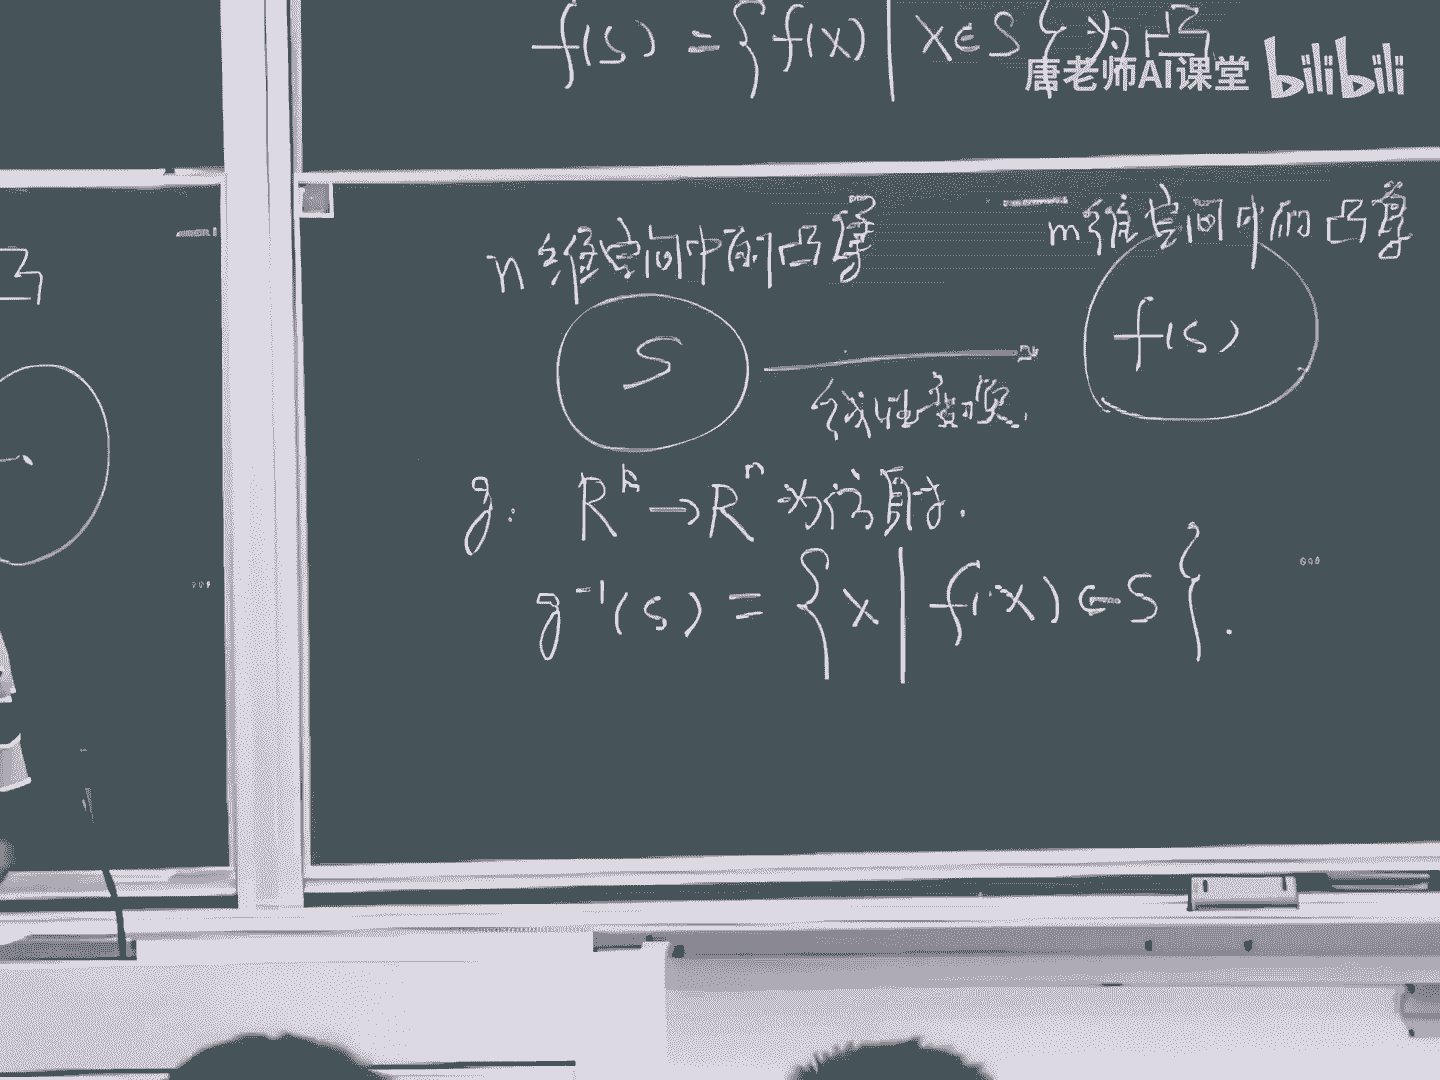 f(S) = { f(x) | x∈S } 为凸
唐老师AI课堂 bilibili
n维空间中的凸集
m维空间中的凸集
凸
S
f(S)
线性变换.
g: Rᵏ → Rⁿ 为仿射.
g⁻¹(S) = { x | f(x) ∈ S }.